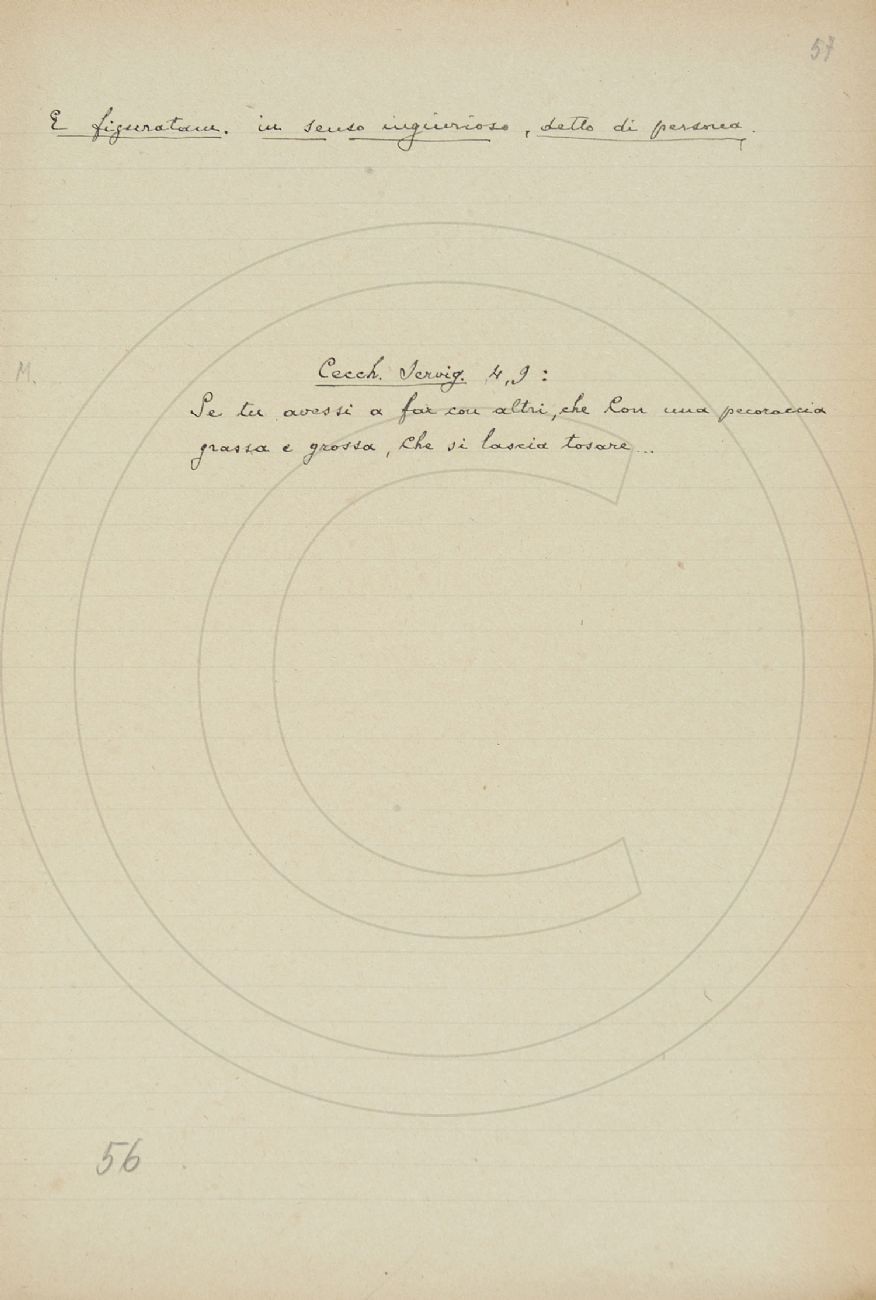 57
E figuratam. in senso ingiurioso, detto di persona.
M.
Cecch. Servig. 4, 9 :
Se tu avessi a far con altri, che con una pecoraccia
grassa e grossa, che si lascia tosare...
56